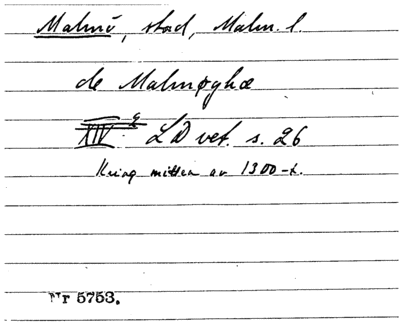 Malmö, stad, Malm. l.
de Malmøghæ
XIV 2 LD vet. s. 26
Kring mitten av 1300-t.
Nr 5753.